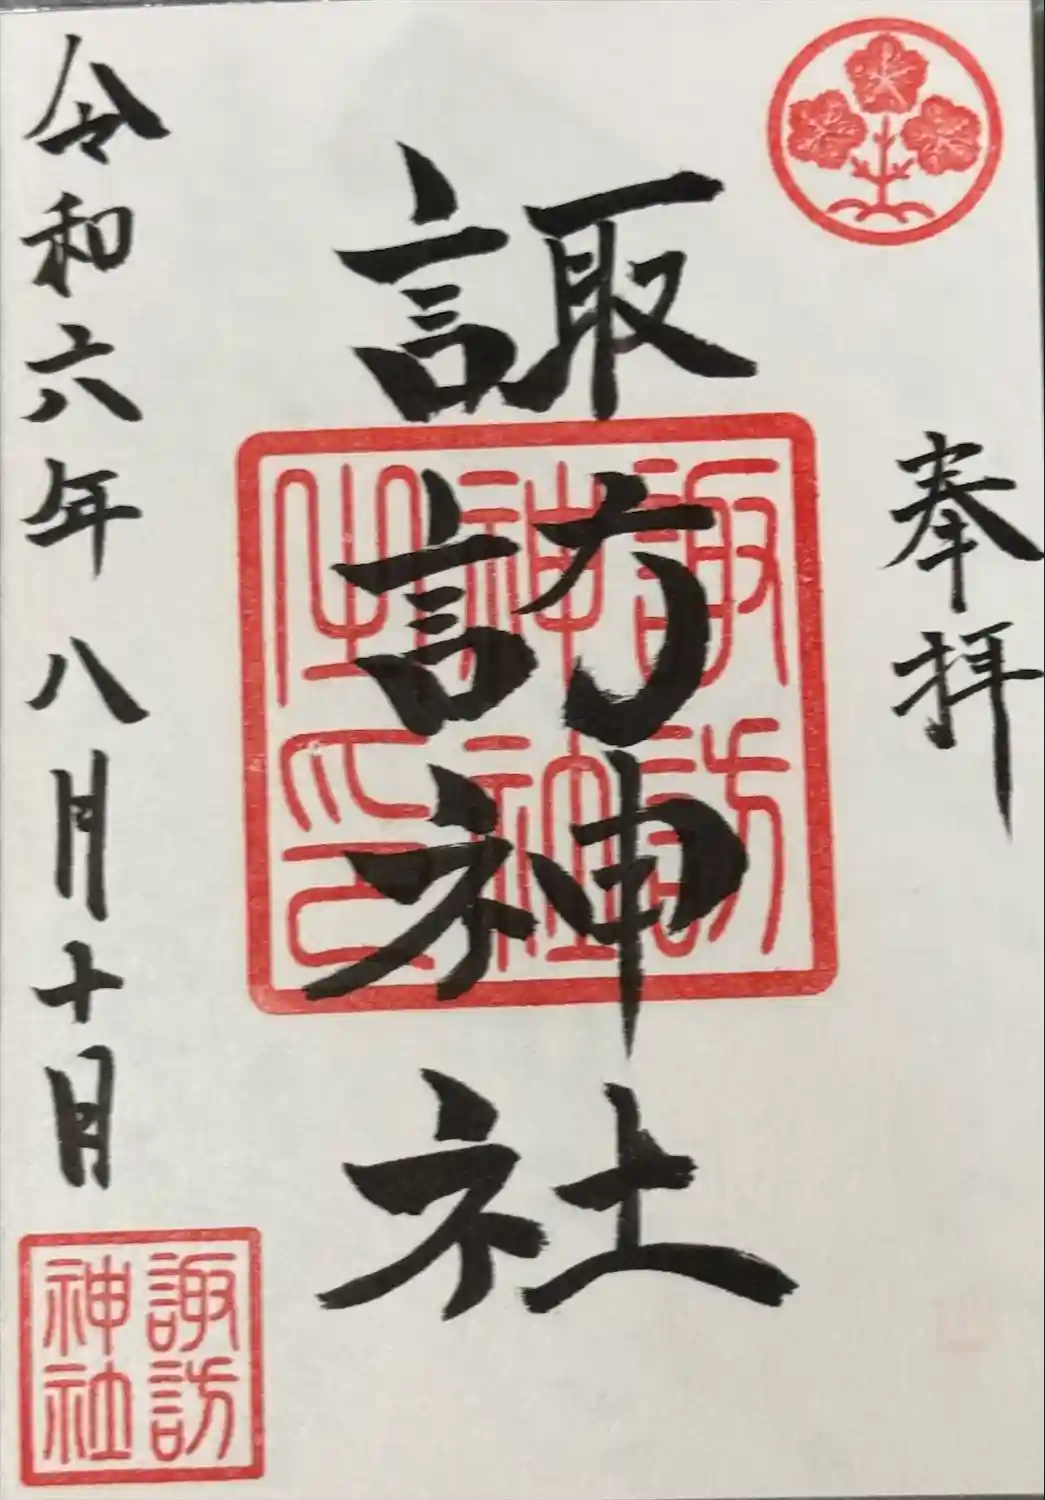 奉拝
諏訪神社
諏訪
神社
之印
令和六年八月十日
諏訪
神社